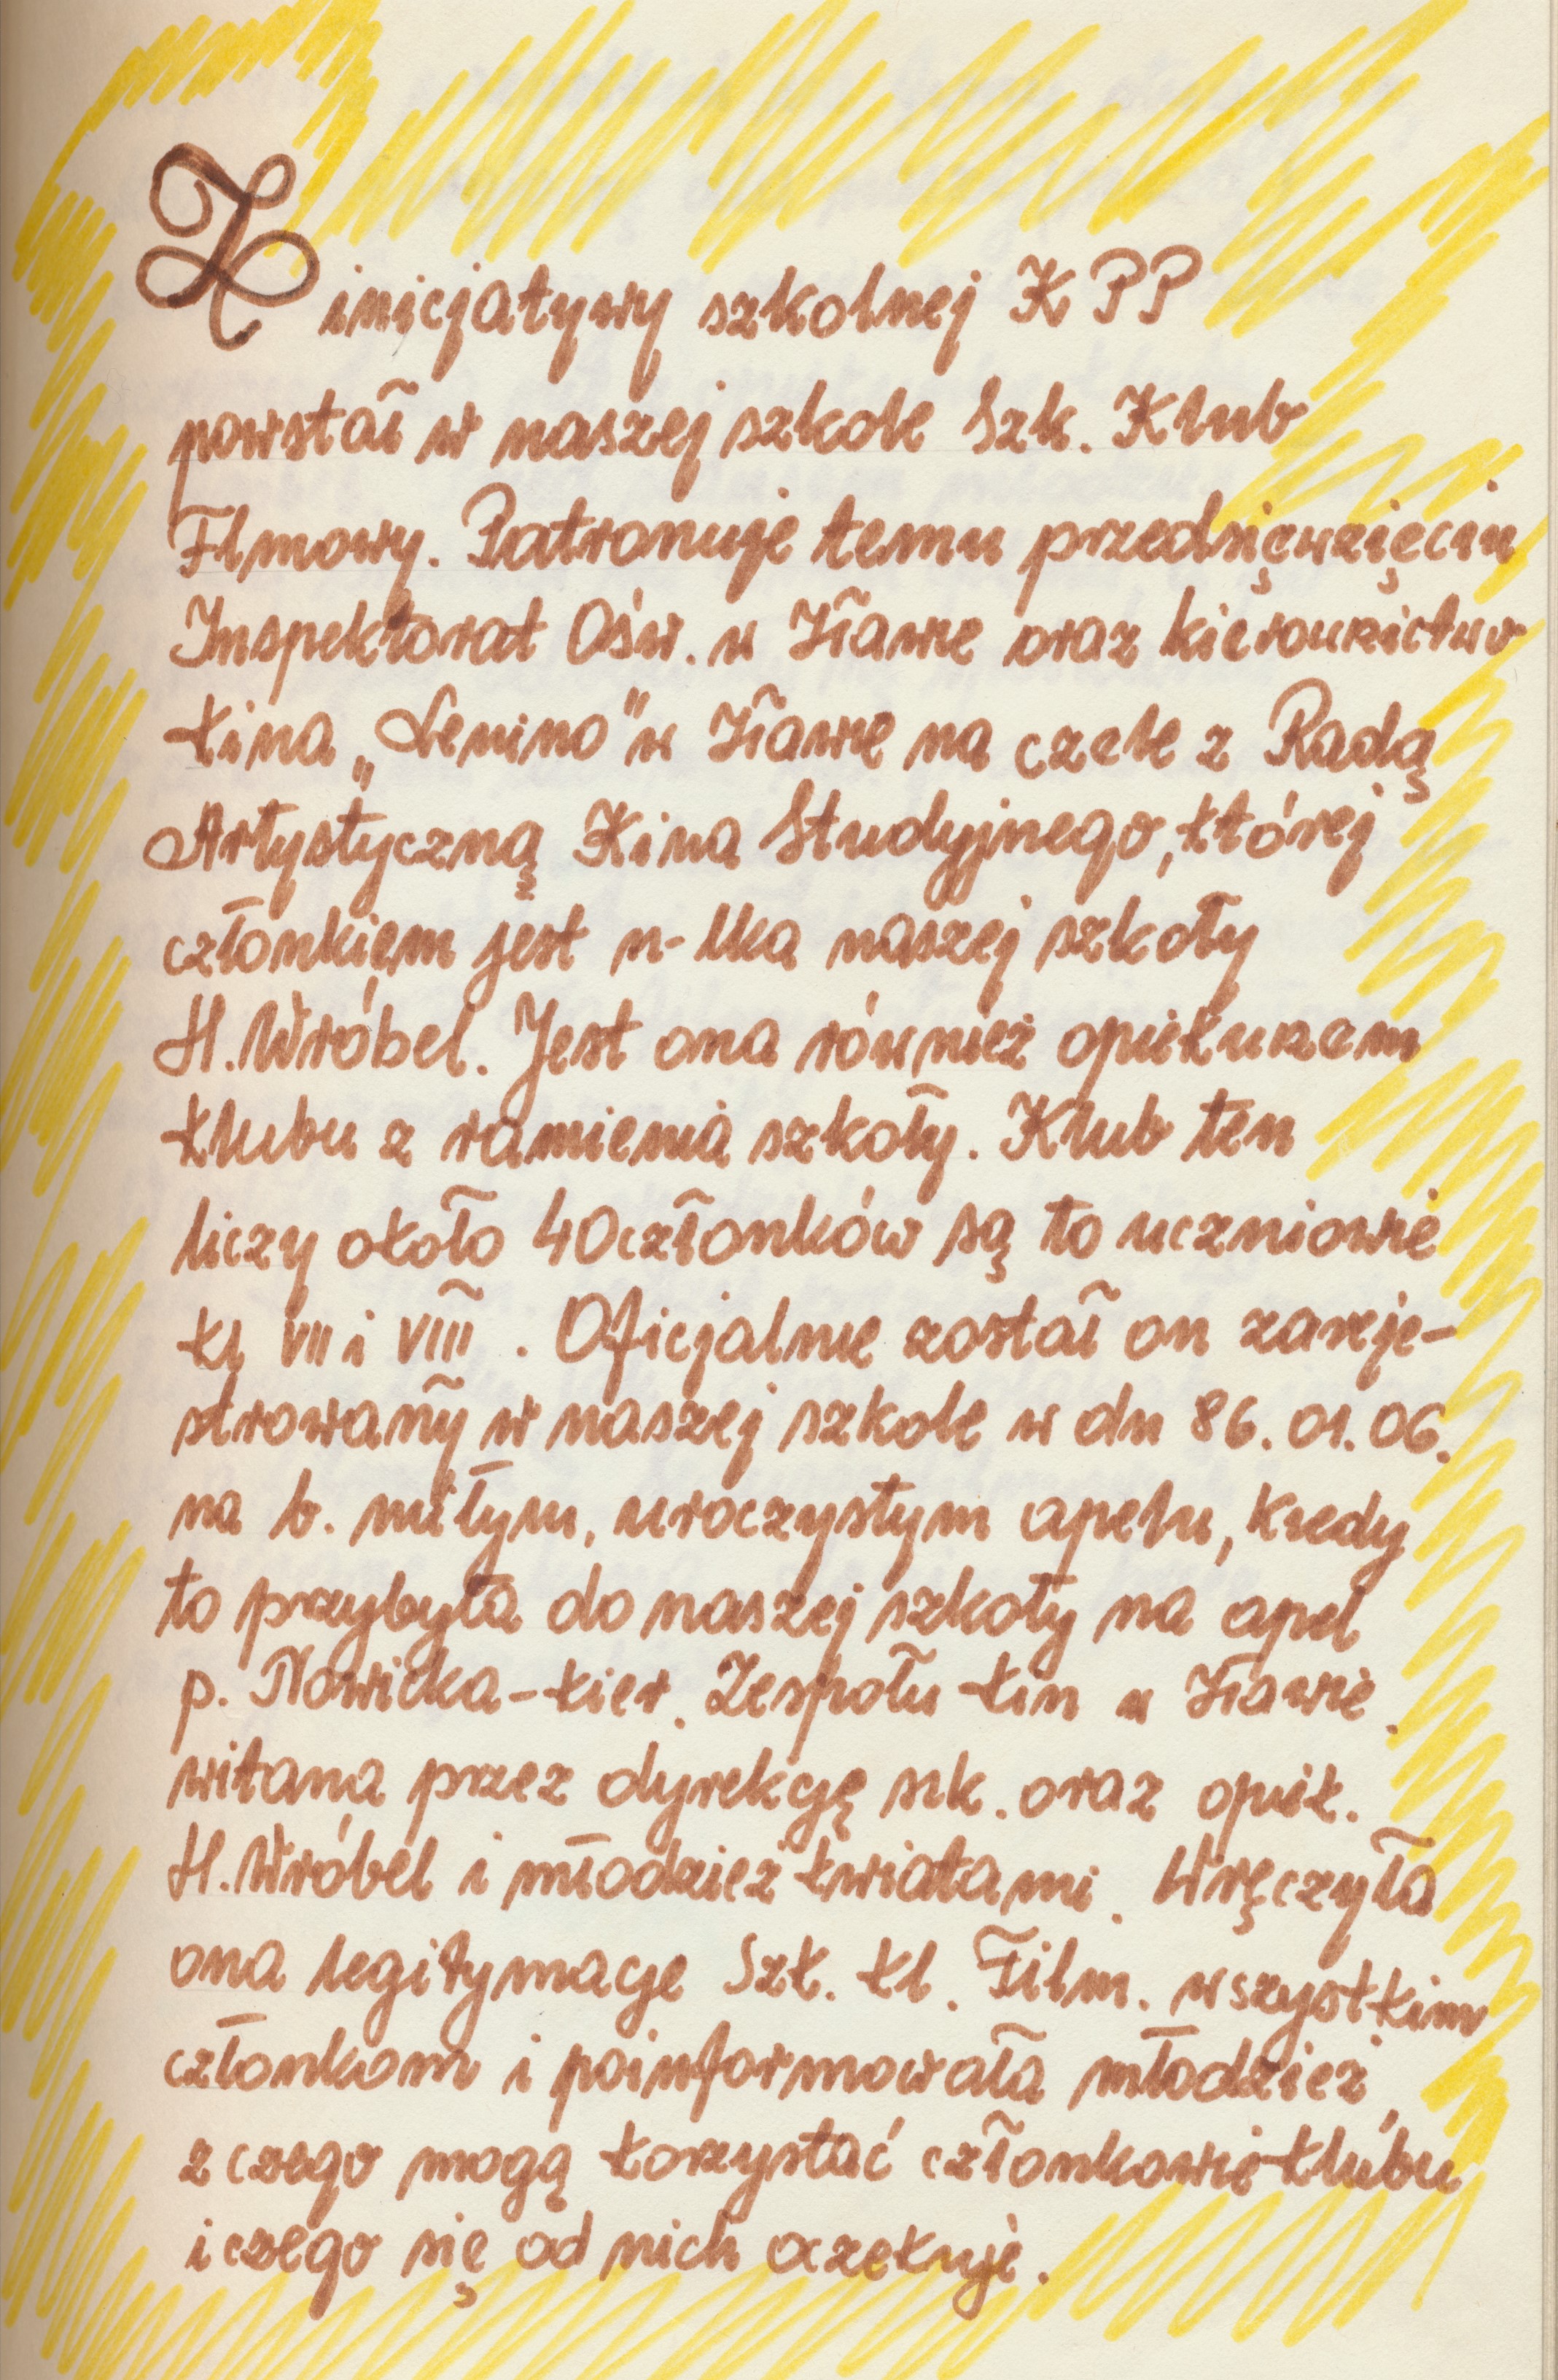 Z inicjatywy szkolnej KPP
powstał w naszej szkole Szk. Klub
Flmowy. Patronuje temu przedsięwzięciu
Inspektorat Ośw. w Iławie oraz kierownictwo
kina „Lenino" w Iławie na czele z Radą
Artystyczną Kina Studyjnego, której
członkiem jest n-lka naszej szkoły
H. Wróbel. Jest ona również opiekunem
klubu z ramienia szkoły. Klub ten
liczy około 40 członków są to uczniowie
kl VII i VIII. Oficjalnie został on zareje-
strowany w naszej szkole w dn 86.01.06.
na b. miłym, uroczystym apelu, kiedy
to przybyła do naszej szkoły na apel
p. Nowicka - kier. Zespołu kin w Iławie.
witana przez dyrekcję szk. oraz opiek.
H. Wróbel i młodzież kwiatami. Wręczyła
ona legitymacje Szk. kl. Film. wszystkim
członkom i poinformowała młodzież,
z czego mogą korzystać członkowie klubu
i czego się od nich oczekuje.